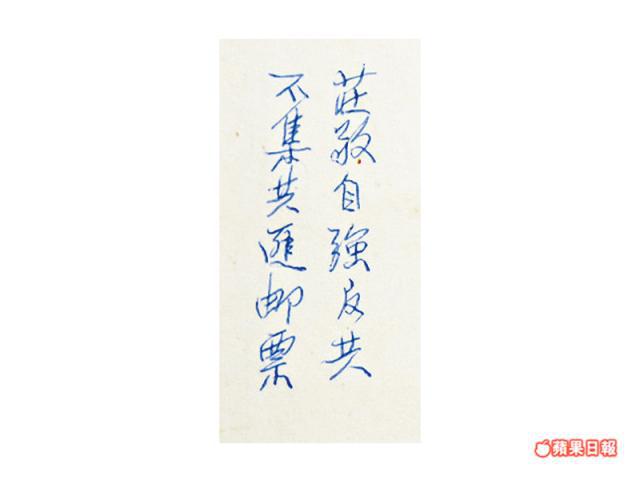 莊敬自強反共
不集共匪邮票
蘋果日報